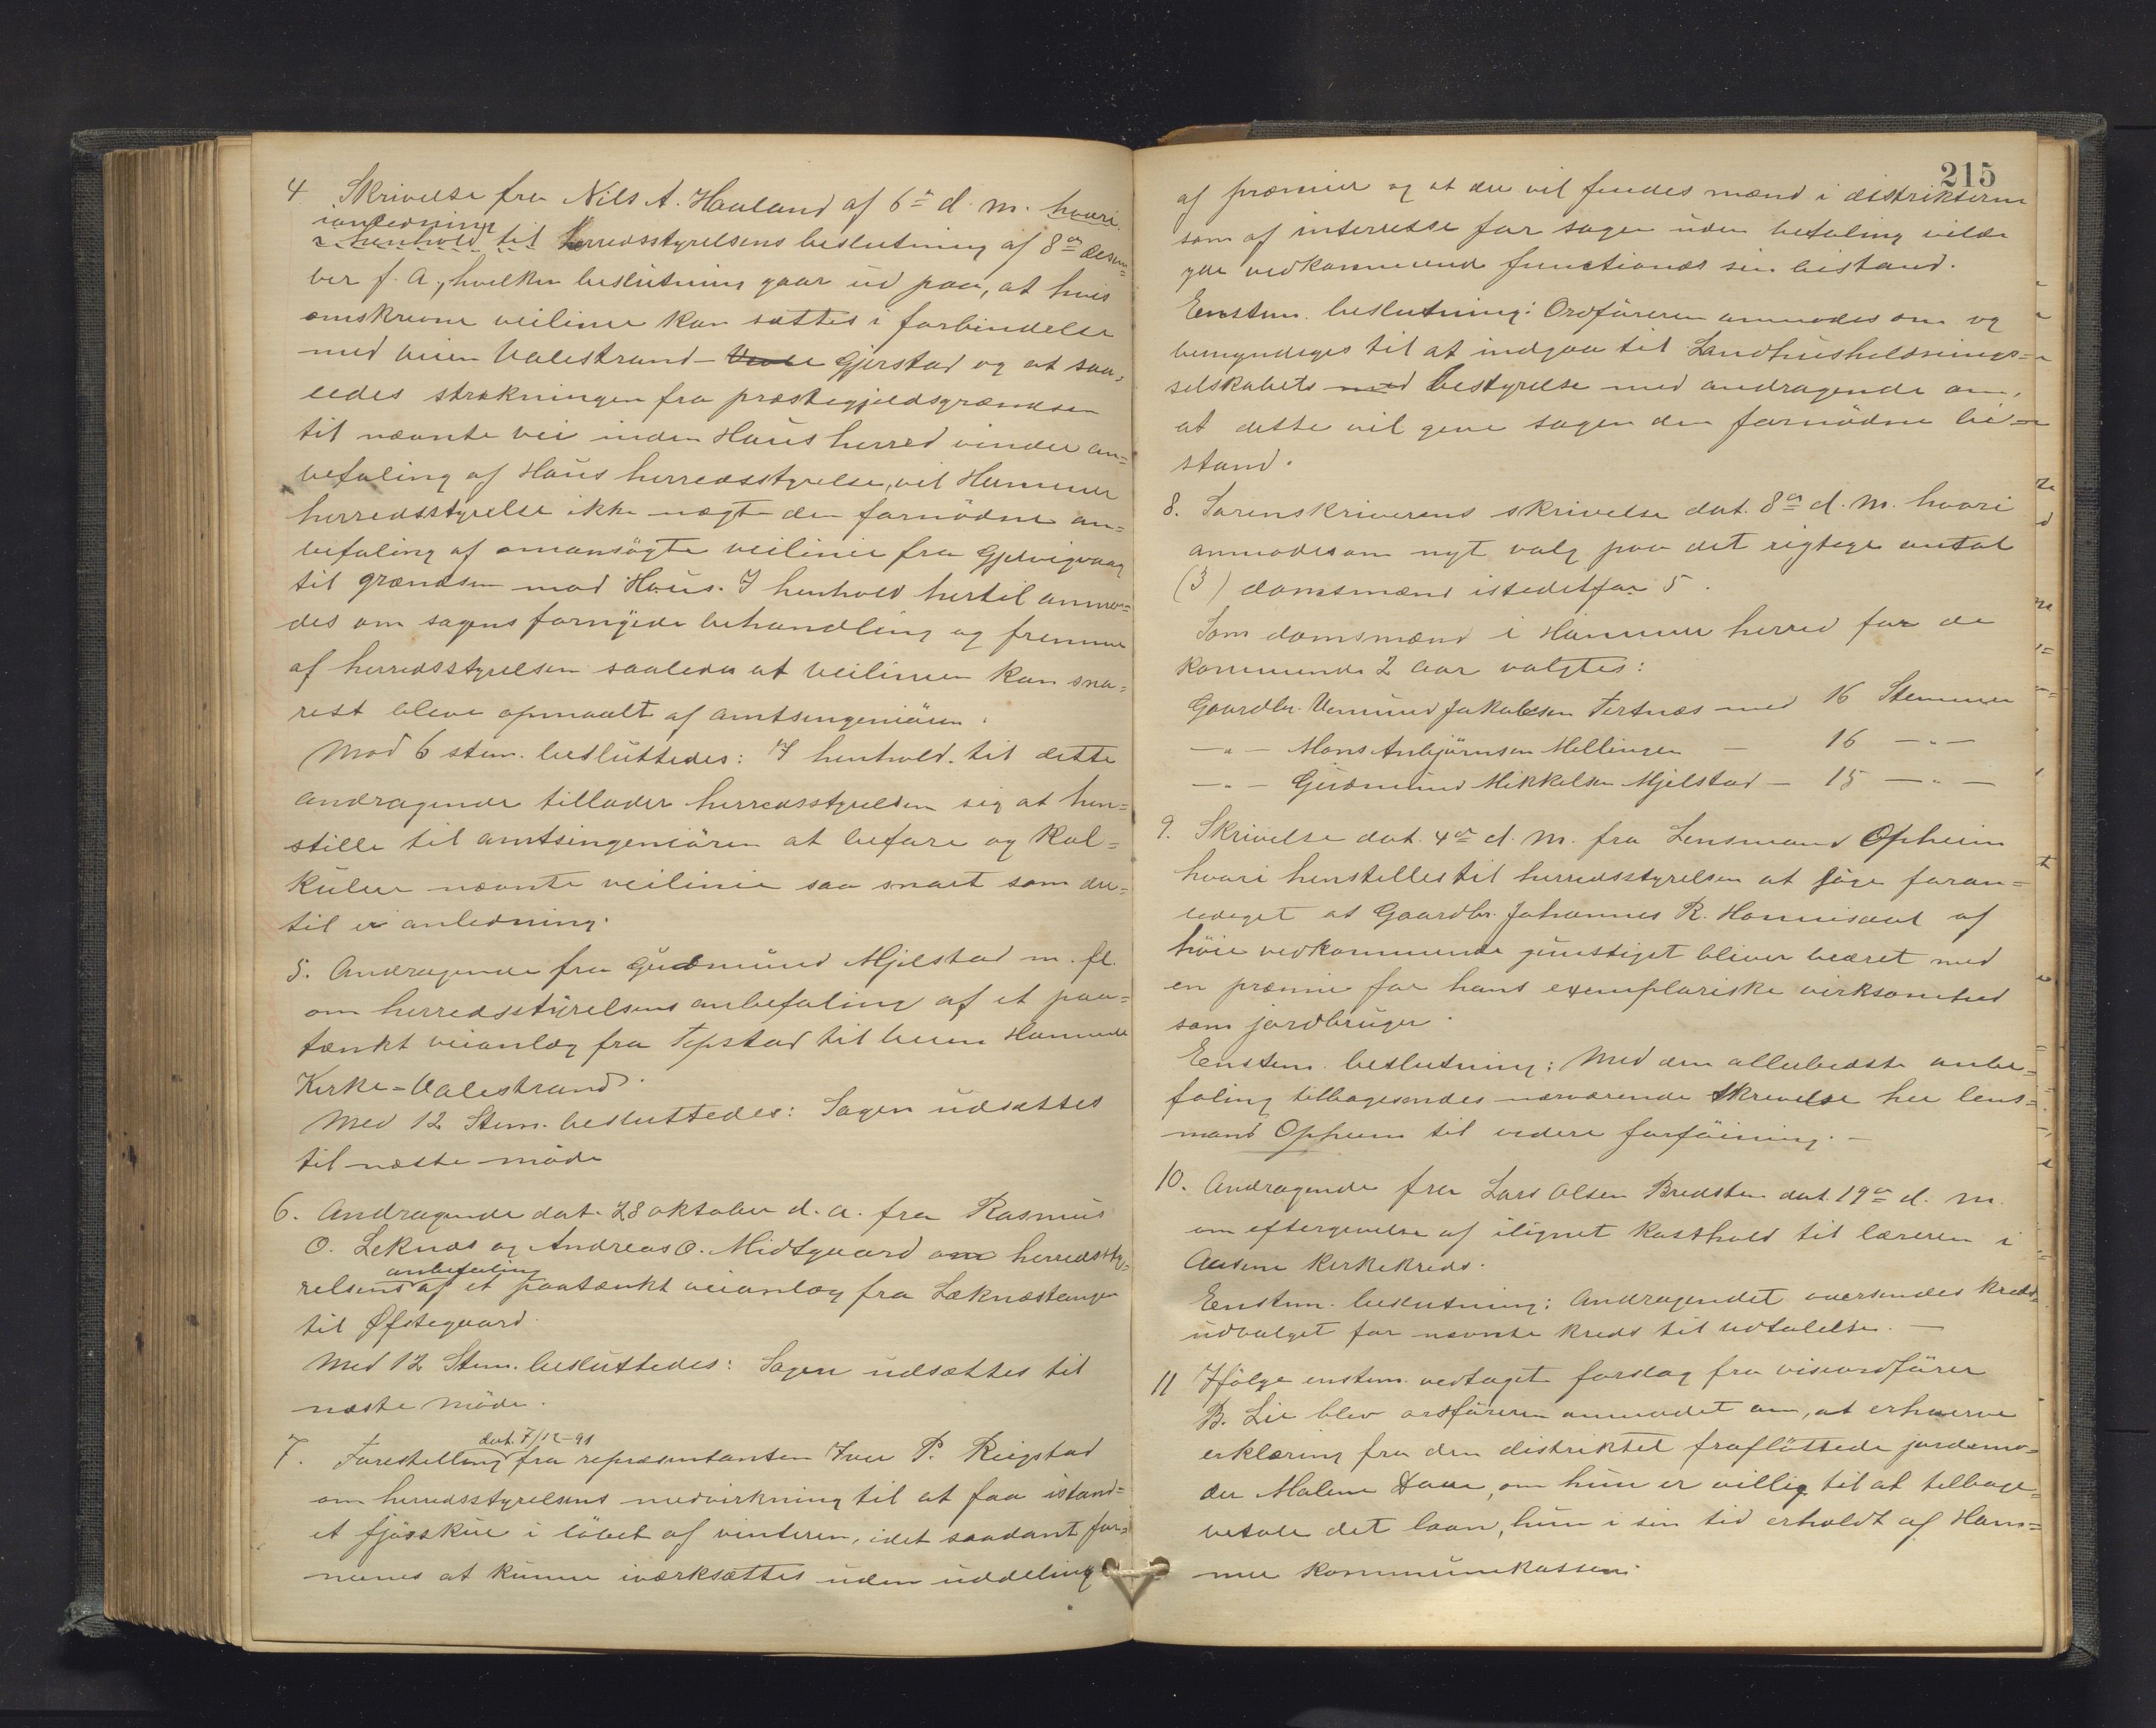 4 Skrivelse fra Nils A. Hauland af 6te d. m. hvori
ianledning
i henhold til herredsstyrelsens beslutning af 8de desem=
ber f. A., hvilken beslutning gaar ud paa, at hvis
omskrevne veilinie kan sættes i forbindelse
med veien Valestrand - Gjerstad og at saa=
ledes strækningen fra præstegjeldsgrændsen
til nævnte vei inden Haus herred vinder an=
befaling af Haus herredsstyrelse, vil Hammer
herredsstyrelse ikke nægte den fornødne an=
befaling af omansøgte veilinie fra Gjervigvaag
til grændsen mod Haus. I henhold hertil anmo=
des om sagens fornyede behandling og fremme
af herredsstyrelsen saaledes at veilinien kan sna=
rest blive opmaalt af amtsingeniøren.
Mod 6 stem. besluttedes: I henhold til dette
andragende tillader herredsstyrelsen sig at hen=
stille til amtsingeniøren at befare og kal=
kulere nævnte veilinie saa snart som der=
til er anledning.
5. Andragende fra Gudmund Mjelstad m. fl.
om herredsstyrelsens anbefaling af et paa=
tænkt veianlæg fra Tepstad til veien Hammer
Kirke - Valestrand.
Med 12 Stem. besluttedes: Sagen udsættes
til næste møde
6. Andragende dat. 28 oktober d. a. fra Rasmus
O. Leknæs og Andreas O. Midtgaard om herredssty=
anbefaling
relsens af et paatænkt veianlæg fra Læknæstangen
til Øfstegaard.
Med 12 Stem. besluttedes: Sagen udsættes til
næste møde.
dat. 7/12-91
7. Forestilling fra repræsentanten Iver P. Reigstad
om herredsstyrelsens medvirkning til at faa istand=
et fjøsskue i løbet af vinteren, idet saadant for=
menes at kunne iværksættes uden uddeling
215
af præmier og at der vil findes mænd i distrikterne
som af interesse for sagen uden betaling vilde
yde vedkommende functionær sin bistand.
Enstem. beslutning: Ordføreren anmodes om og
bemyndiges til at indgaa til Landhusholdnings=
selskabets med bestyrelse med andragende om,
at dette vil give sagen den fornødne bi=
stand.
8. Sorenskriverens skrivelse dat. 8de d. M. hvori
anmodes om nyt valg paa det rigtige antal
(3) domsmænd istedetfor 5.
Som domsmænd i Hammer herred for de
kommende 2 aar valgtes:
Gaardbr. Vemund Jakobsen Tertnæs med 16 Stemmer
— " — Mons Anbjørnsen Mellingen — 16 — " —
— " — Gudmund Mikkelsen Mjelstad — 15 — " —
9. Skrivelse dat. 4de d. M. fra Lensmand Opheim
hvori henstilles til herredsstyrelsen at søge foran=
lediget at Gaardbr. Johannes R. Hannisdal af
høie vedkommende gunstiget bliver beæret med
en præmie for hans exemplariske virksomhed
som jordbruger.
Enstem. beslutning: Med den allerbedste anbe=
faling tilbagesendes nærværende skrivelse her lens=
mand Opheim til videre forføining. —
10. Andragende fra Lars Olsen Bredsten dat. 19de d. M.
om eftergivelse af ilignet kosthold til læreren i
Aasene kirkekreds.
Enstem. beslutning: Andragendet oversendes kreds=
udvalget for nævnte kreds til udtalelse. —
11 Ifølge enstem. vedtaget forslag fra viseordfører
B. Lie blev ordføreren anmodet om, at erhverve
erklæring fra den distriktet fraflöttede jordemo=
der Malene Daae, om hun er villig til at tilbage=
betale det laan, hun i sin tid erholdt af Ham=
mer kommunekassen.